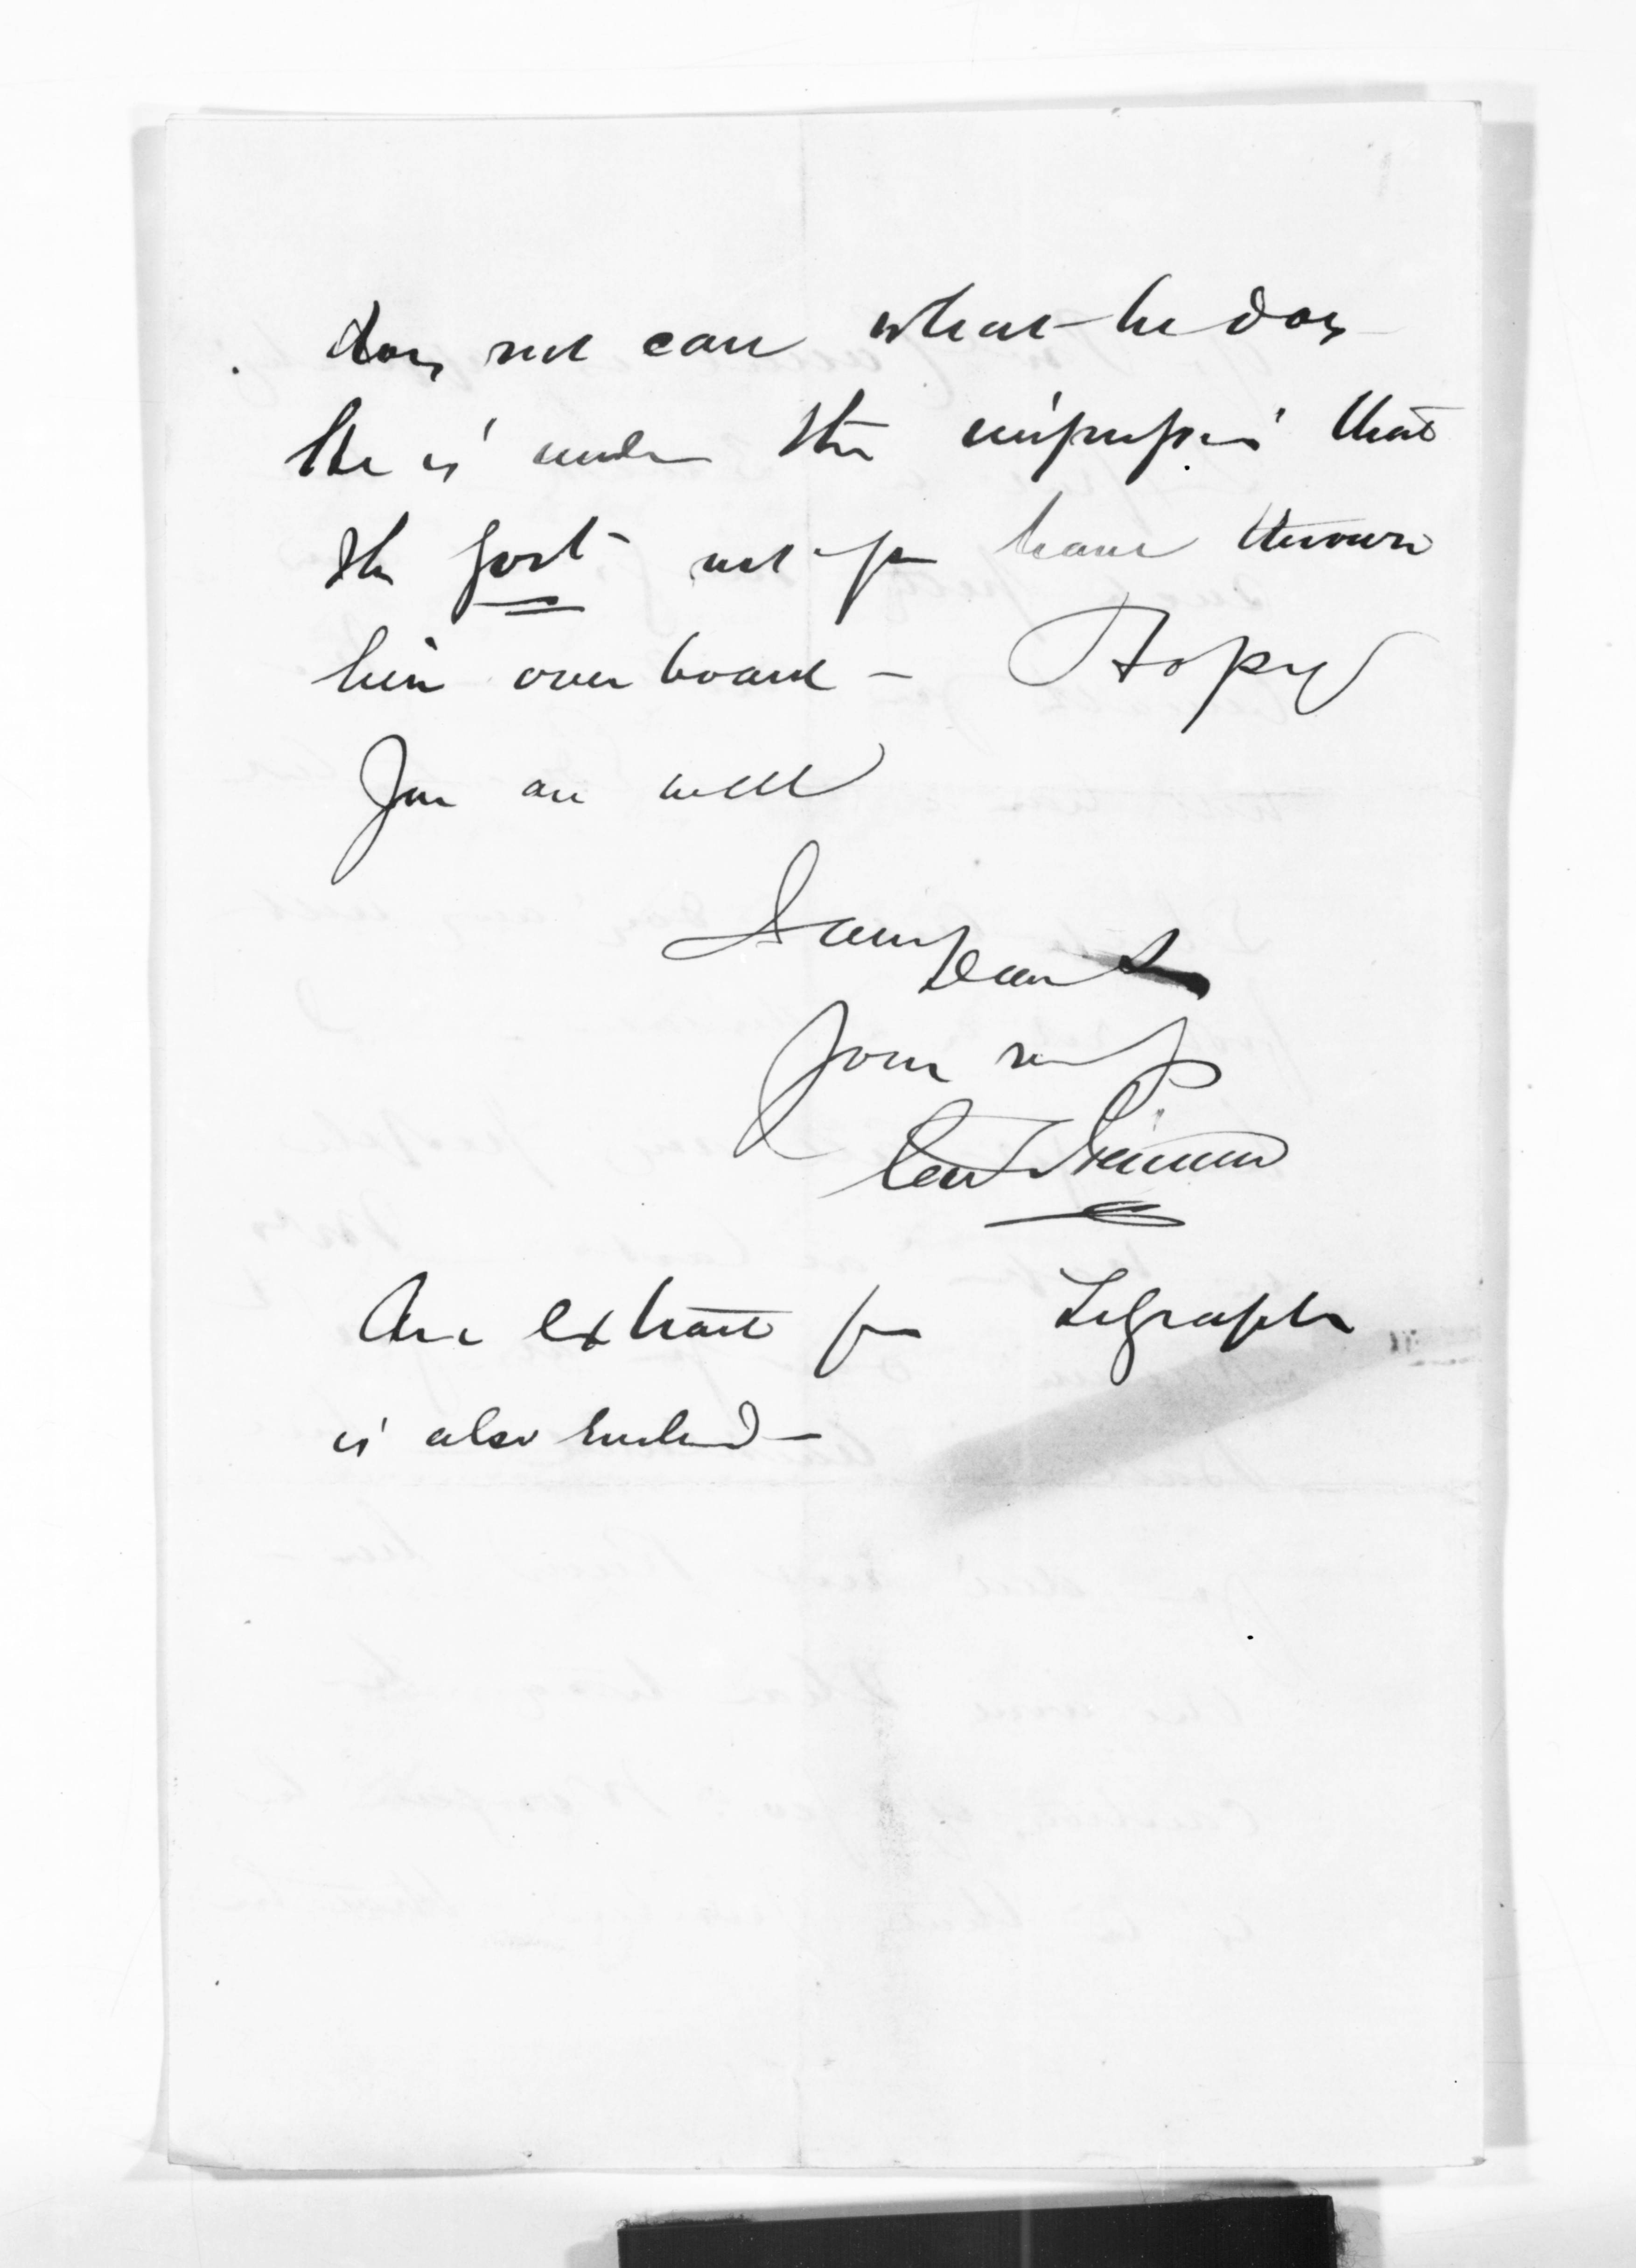 does not care what he does
He is under the impression that
the Govt - not you have thrown
him over board - Hoping
you are well
I am
Dear Sir
Yours
An extract from Telegraph
is also enclosed -